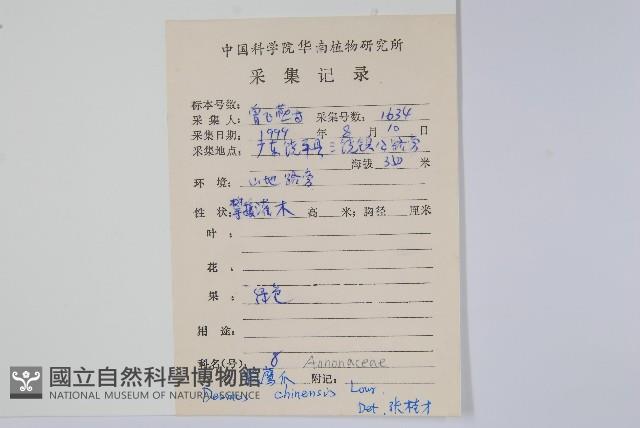 中国科学院华南植物研究所
采集记录
标本号数:
采集人: 曾飞燕 采集号数: 1634
采集日期: 1999 年 8 月 10 日
采集地点: 广东饶平县三饶镇公路旁
海拔 350 米
环境: 山地路旁
性状: 攀援灌木 高 米; 胸径 厘米
叶:
花:
果: 绿色
用途:
科名(号) 8 Annonaceae
鹰爪 附记:
Desmos chinensis Lour.
Det. 张桂才
國立自然科學博物館
NATIONAL MUSEUM OF NATURAL SCIENCE